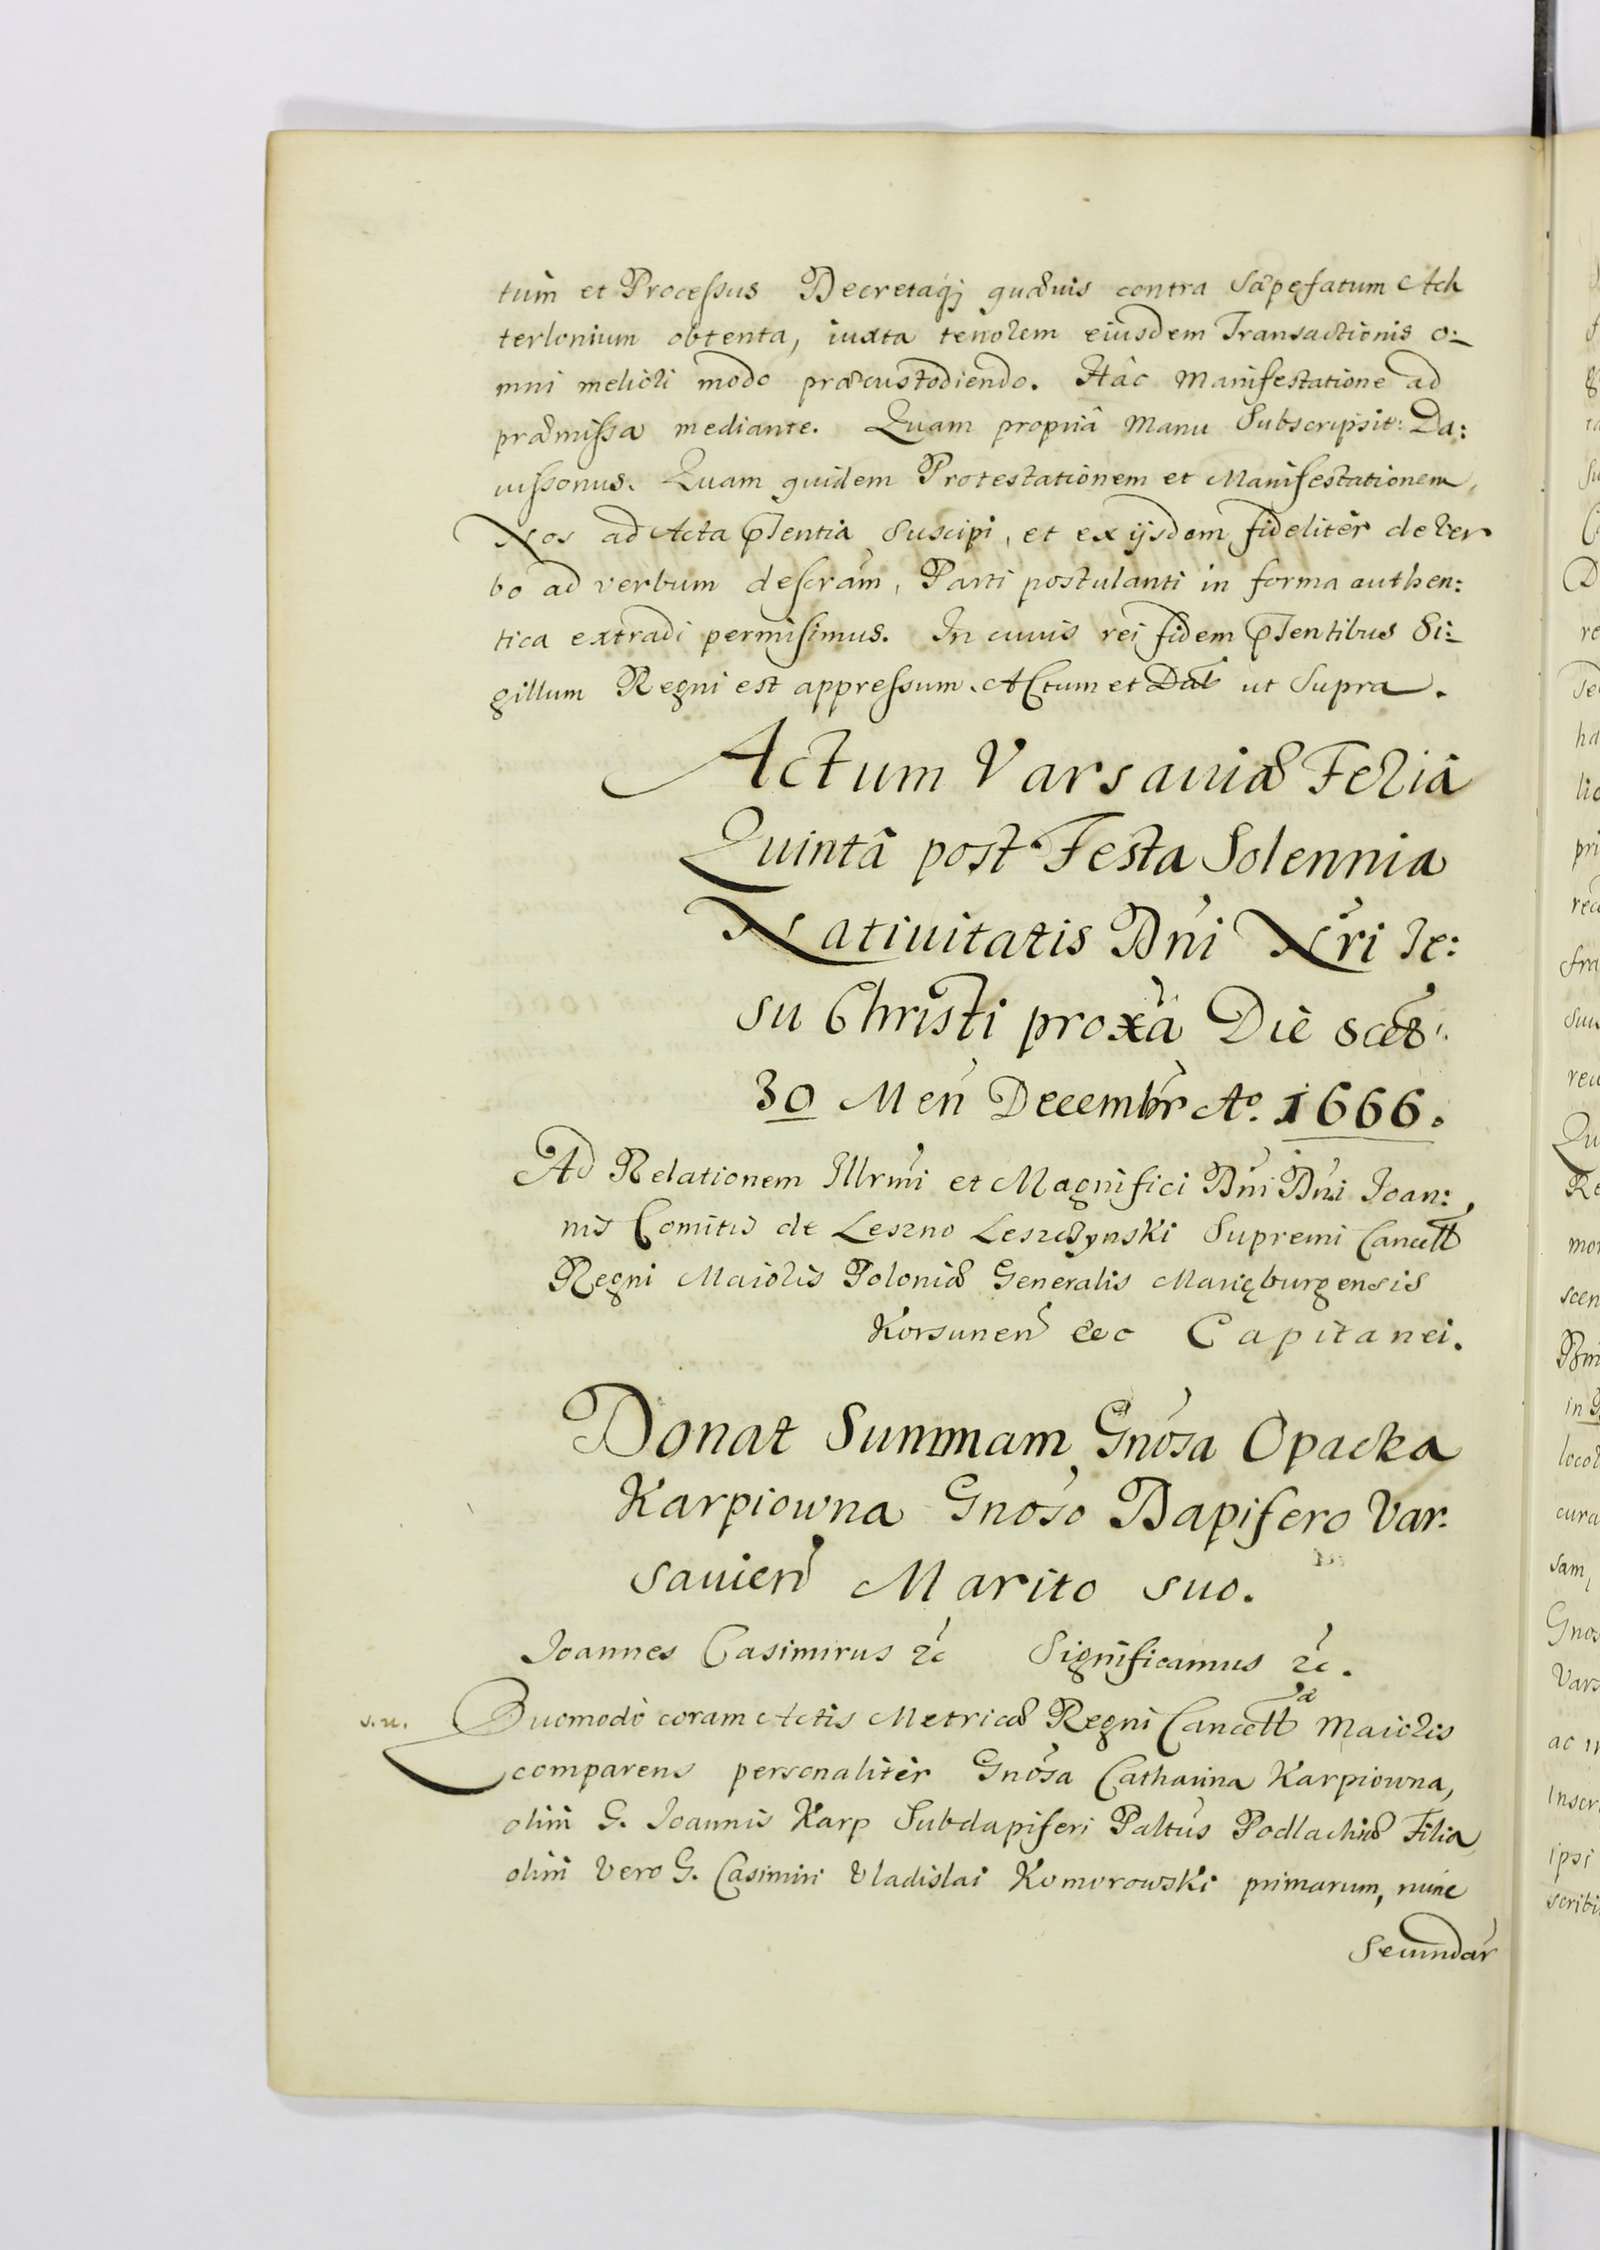 tum et Processus Decretaq; quævis contra Sæpefatum Ach
terlonium obtenta, iuxta tenorem eiusdem Transactionis o:
mni meliori modo præcustodiendo. Hâc Manifestatione ad
præmissa mediante. Quam propriâ Manu Subscripsit: Da:
uissonus. Quam quidem Protestationem et Manifestationem,
Nos ad Acta pñtentia Suscipi, et ex ijsdem fideliter de ver
bo ad verbum descrām, Parti postulanti in forma authen:
tica extradi permisimus. In cuius rei fidem pñtentibus Si:
gillum Regni est appressum. Actum et Dat ut Supra.
Actum Varsaviæ Feria
Quintâ post Festa Solennia
Nativitatis Dñi Nri Je:
su Christi proxâ Die scet:
30 Men Decembr Ao. 1666.
Ad Relationem Illrmi et Magnifici Dñi Dñi Joan:
nis Comitis de Leszno Leszczynski Supremi Cancell
Regni Maioris Poloniæ Generalis Mariæburgensis
Korsunen &c Capitanei.
Donat Summam Gnosa Opacka
Karpiowna Gnoso Dapifero Var:
savien Marito suo.
Joannes Casimirus &c Significamus &c.
s. n. Quomodo coram Actis Metricæ Regni Cancellæ Maioris
comparens personaliter Gnosa Catharina Karpiowna,
olim G. Joannis Karp Subdapiferi Paltus Podlachiæ Filia
olim vero G. Casimiri Vladislai Komorowski primarum, nunc
Secundar